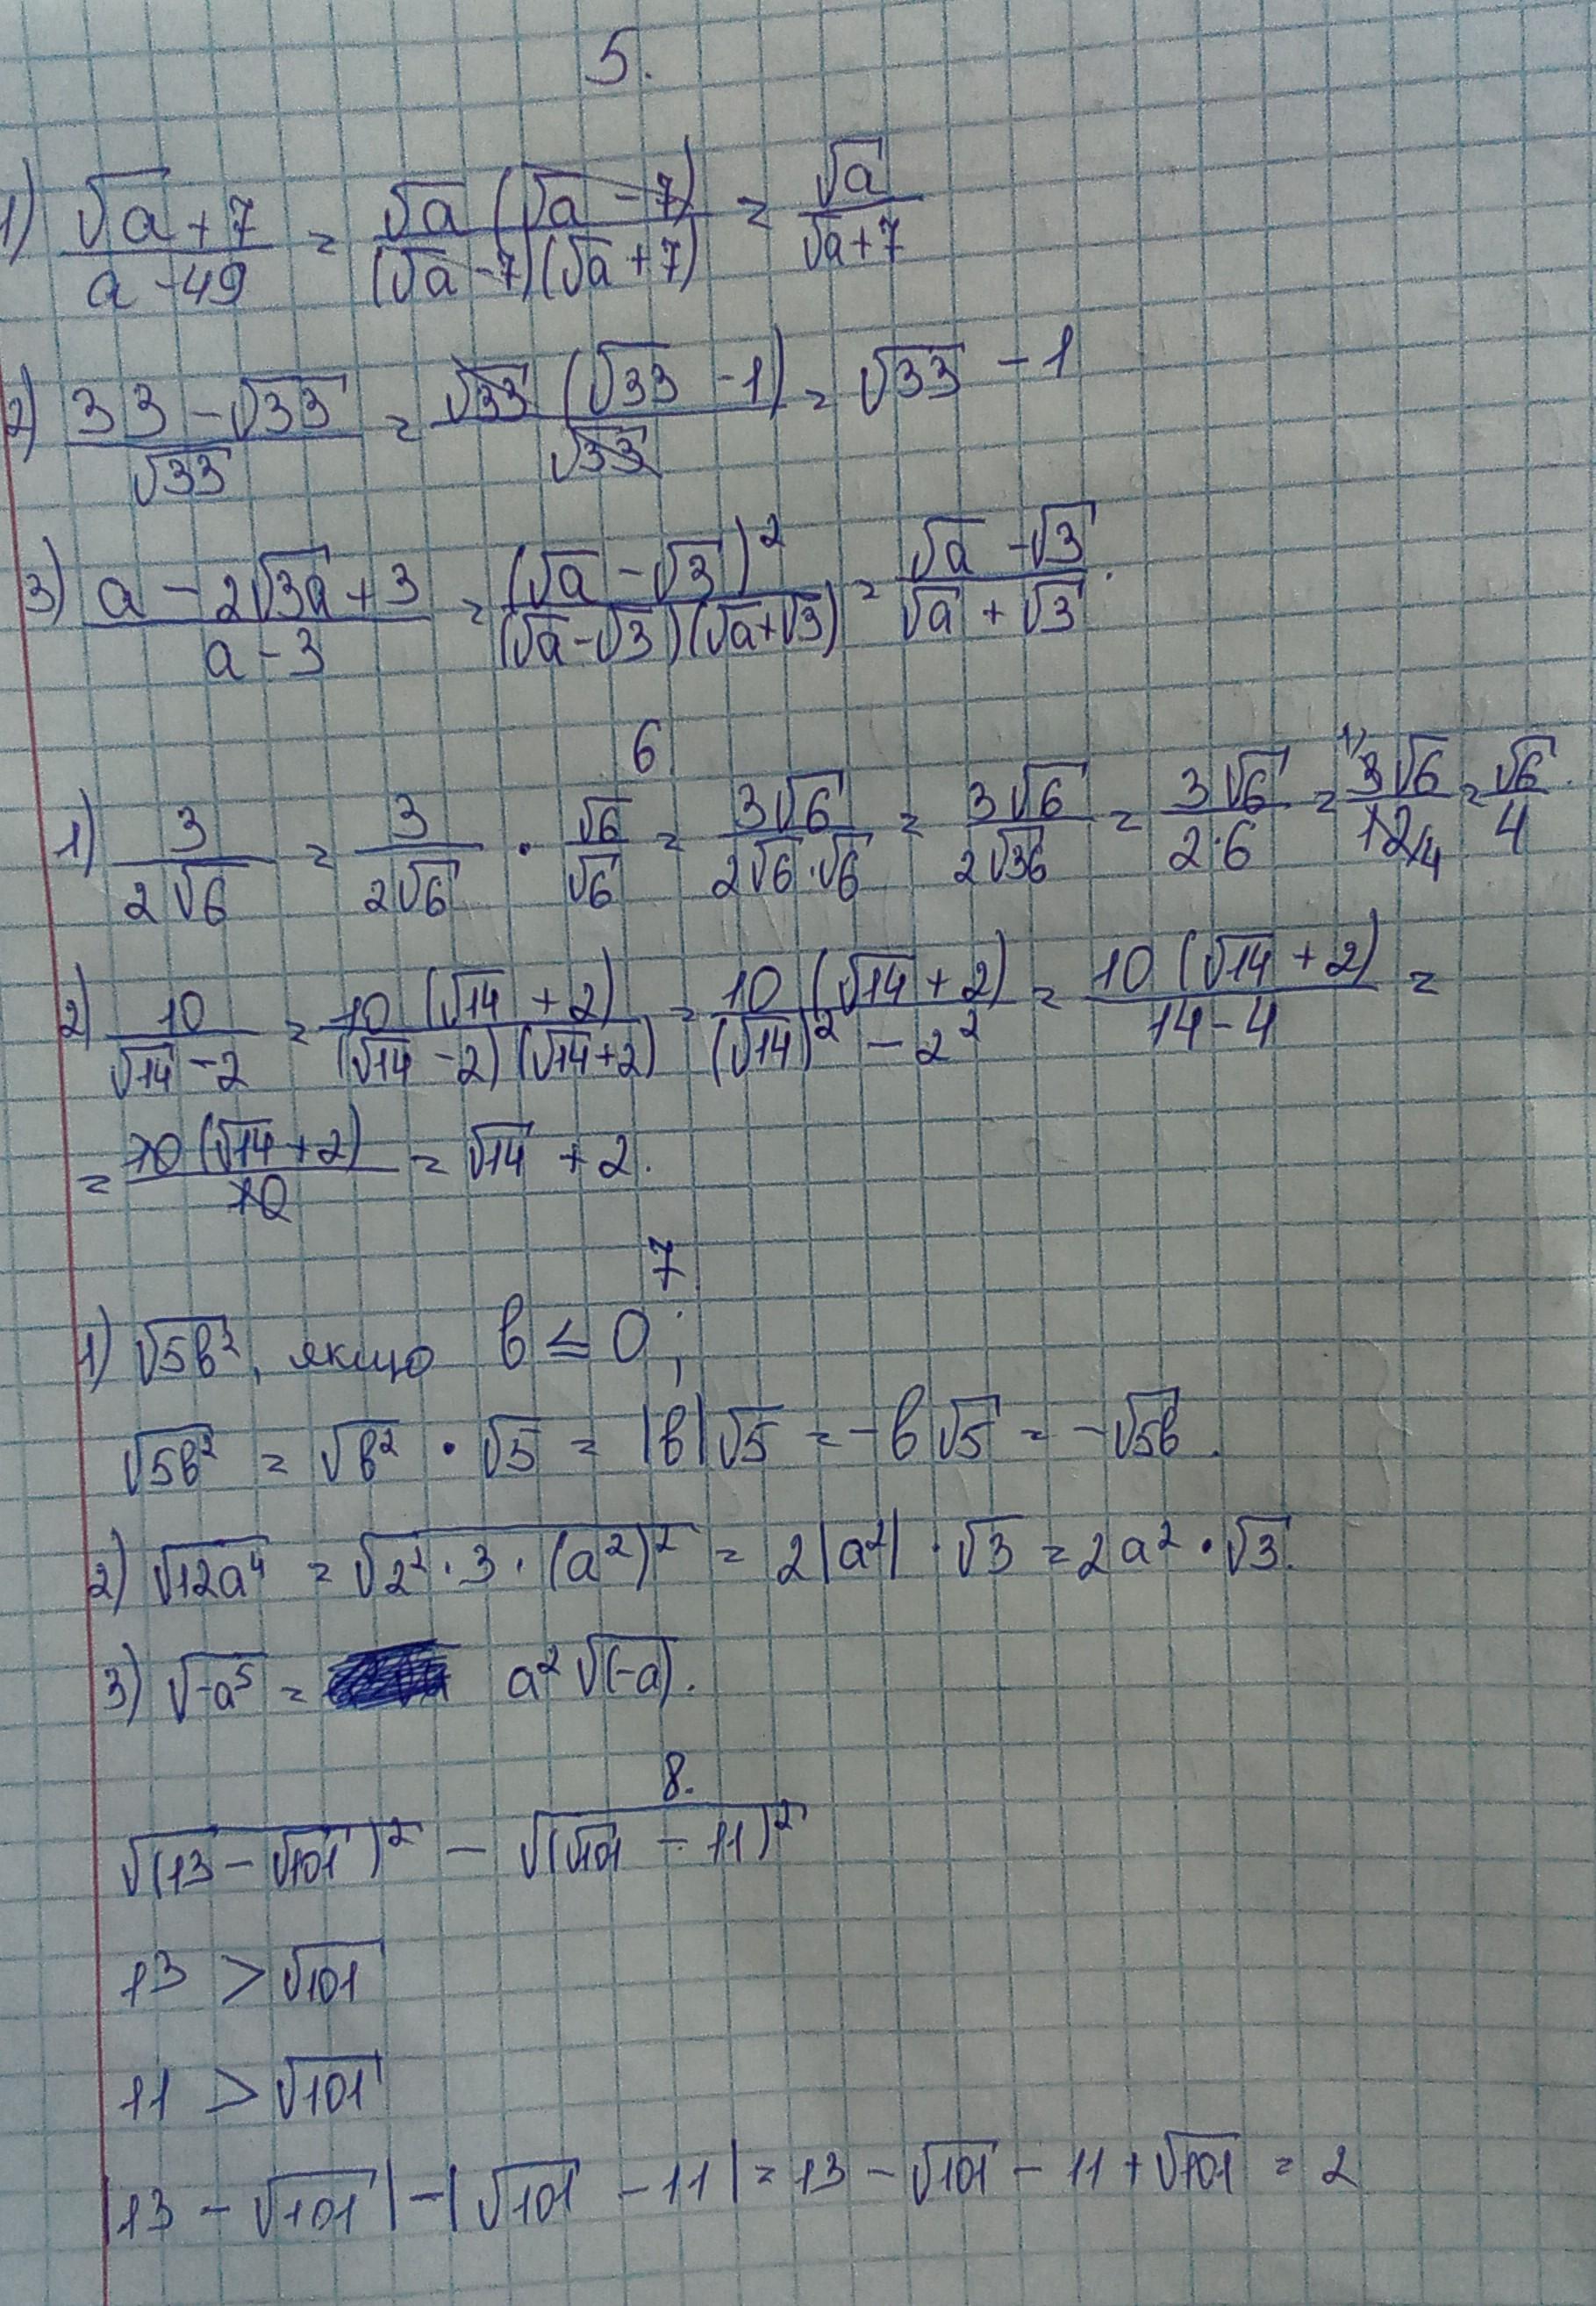 5.
1) \frac{√a + 7}{a - 49} = \frac{√a (√a - 7)}{(√a - 7)(√a + 7)} = \frac{√a}{√a + 7}
2) \frac{33 - √33}{√33} = \frac{√33 (√33 - 1)}{√33} = √33 - 1
3) \frac{a - 2√3a + 3}{a - 3} = \frac{(√a - √3)^2}{(√a - √3)(√a + √3)} = \frac{√a - √3}{√a + √3}.
6.
1) \frac{3}{2√6} = \frac{3}{2√6} · \frac{√6}{√6} = \frac{3√6}{2√6 · √6} = \frac{3√6}{2√36} = \frac{3√6}{2·6} = \frac{^1 3√6}{12_4} = \frac{√6}{4}.
2) \frac{10}{√14 - 2} = \frac{10 (√14 + 2)}{(√14 - 2)(√14 + 2)} = \frac{10 (√14 + 2)}{(√14)^2 - 2^2} = \frac{10 (√14 + 2)}{14 - 4} =
= \frac{10 (√14 + 2)}{10} = √14 + 2.
7.
1) √5b², якщо b ≤ 0;
√5b² = √b² · √5 = |b|√5 = -b√5 = -√5b.
2) √12a⁴ = √2² · 3 · (a²)² = 2|a²| · √3 = 2a² · √3.
3) √-a⁵ = a²√(-a).
8.
√(13 - √101)² - √(√101 - 11)²
13 > √101
11 > √101
|13 - √101| - |√101 - 11| = 13 - √101 - 11 + √101 = 2